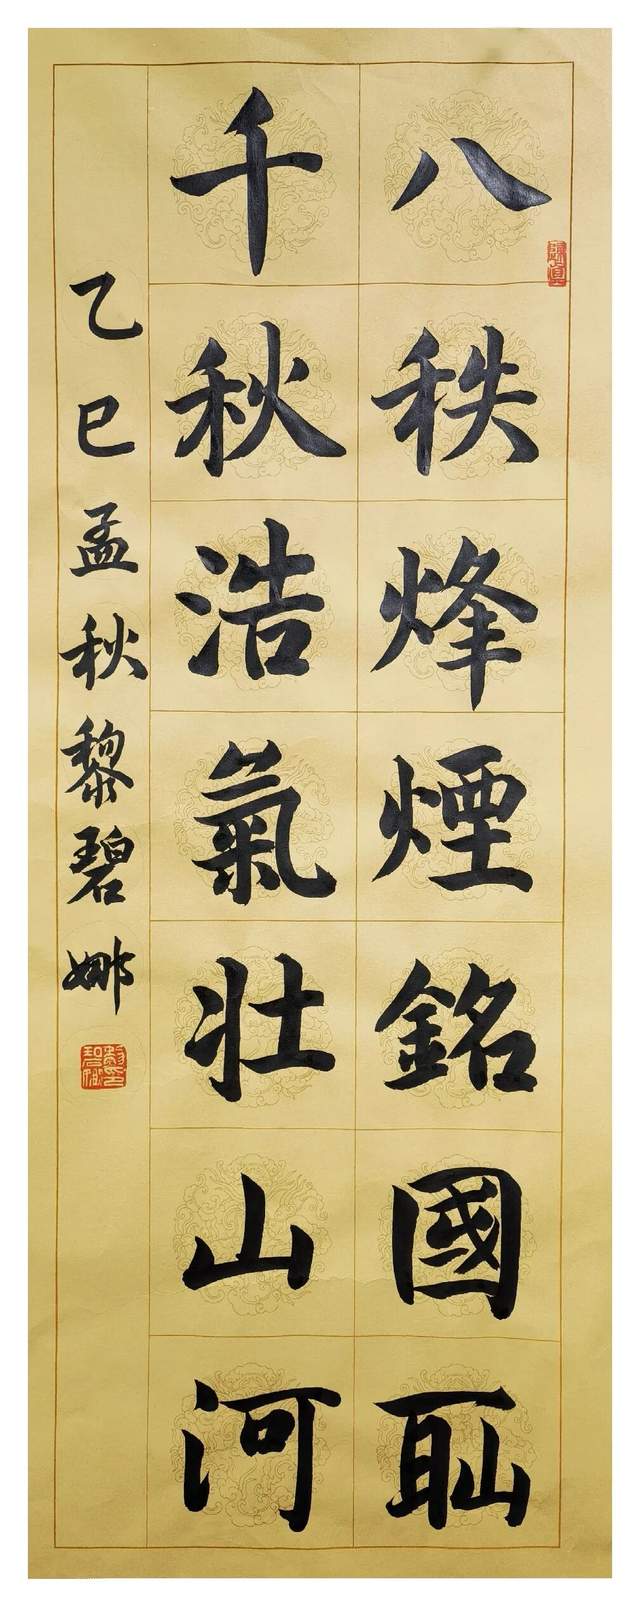 八秩烽煙銘國耻
千秋浩氣壯山河
乙巳孟秋黎碧娜